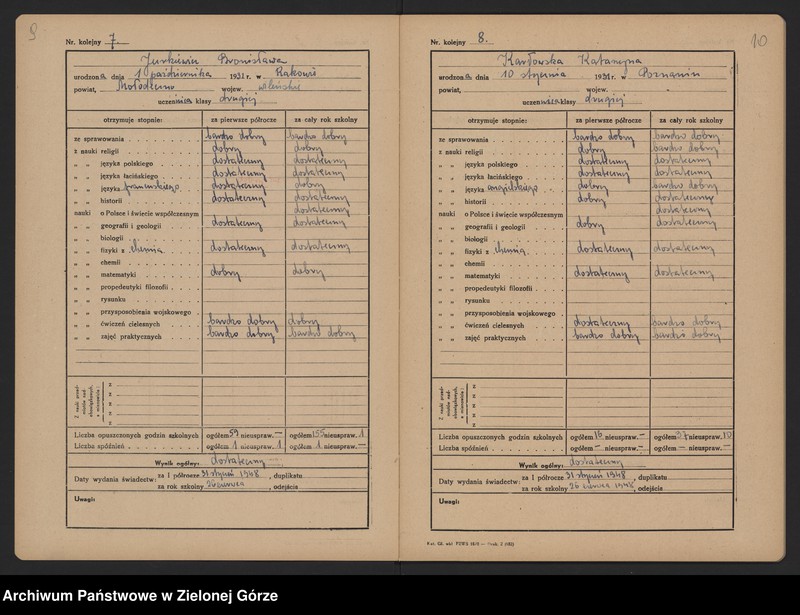 9
Nr. kolejny 7.
Jurkiewicz Bronisława
urodzon dnia 1 października 1931 r. w Rakowie
powiat, Mołodeczno wojew. wileńskie
uczennica klasy drugiej
otrzymuje stopnie: za pierwsze półrocze za cały rok szkolny
ze sprawowania bardzo dobry bardzo dobry
z nauki religii dobry dobry
„ „ języka polskiego dostateczny dostateczny
„ „ języka łacińskiego dostateczny dostateczny
„ „ języka francuskiego dostateczny dobry
„ „ historii dostateczny dostateczny
nauki o Polsce i świecie współczesnym dostateczny
„ „ geografii i geologii dostateczny dostateczny
„ „ biologii
„ „ fizyki z chemią dostateczny dostateczny
„ „ chemii
„ „ matematyki dobry dobry
„ „ propedeutyki filozofii
„ „ rysunku
„ „ przysposobienia wojskowego
„ „ ćwiczeń cielesnych bardzo dobry dobry
„ „ zajęć praktycznych bardzo dobry bardzo dobry
Liczba opuszczonych godzin szkolnych ogółem 59 nieuspraw. — ogółem 155 nieuspraw. 1
Liczba spóźnień ogółem 1 nieuspraw. 1 ogółem 1 nieuspraw. —
Wynik ogólny: dostateczny
Daty wydania świadectw: za I półrocze 31 styczeń 1948, duplikatu
za rok szkolny 26 czerwca, odejście
Uwagi:
10
Nr. kolejny 8.
Karłowska Katarzyna
urodzon dnia 10 stycznia 1931 r. w Poznaniu
powiat, wojew.
uczennica klasy drugiej
otrzymuje stopnie: za pierwsze półrocze za cały rok szkolny
ze sprawowania bardzo dobry bardzo dobry
z nauki religii dobry bardzo dobry
„ „ języka polskiego dostateczny dostateczny
„ „ języka łacińskiego dostateczny dostateczny
„ „ języka angielskiego dobry bardzo dobry
„ „ historii dobry dostateczny
nauki o Polsce i świecie współczesnym dostateczny
„ „ geografii i geologii dobry dostateczny
„ „ biologii
„ „ fizyki z chemią dostateczny dostateczny
„ „ chemii
„ „ matematyki dostateczny dostateczny
„ „ propedeutyki filozofii
„ „ rysunku
„ „ przysposobienia wojskowego
„ „ ćwiczeń cielesnych dostateczny bardzo dobry
„ „ zajęć praktycznych bardzo dobry bardzo dobry
Liczba opuszczonych godzin szkolnych ogółem 16 nieuspraw. — ogółem 37 nieuspraw. 10
Liczba spóźnień ogółem — nieuspraw. — ogółem — nieuspraw. —
Wynik ogólny: dostateczny
Daty wydania świadectw: za I półrocze 31 styczeń 1948, duplikatu
za rok szkolny 26 czerwca 1948, odejście
Uwagi:
Archiwum Państwowe w Zielonej Górze